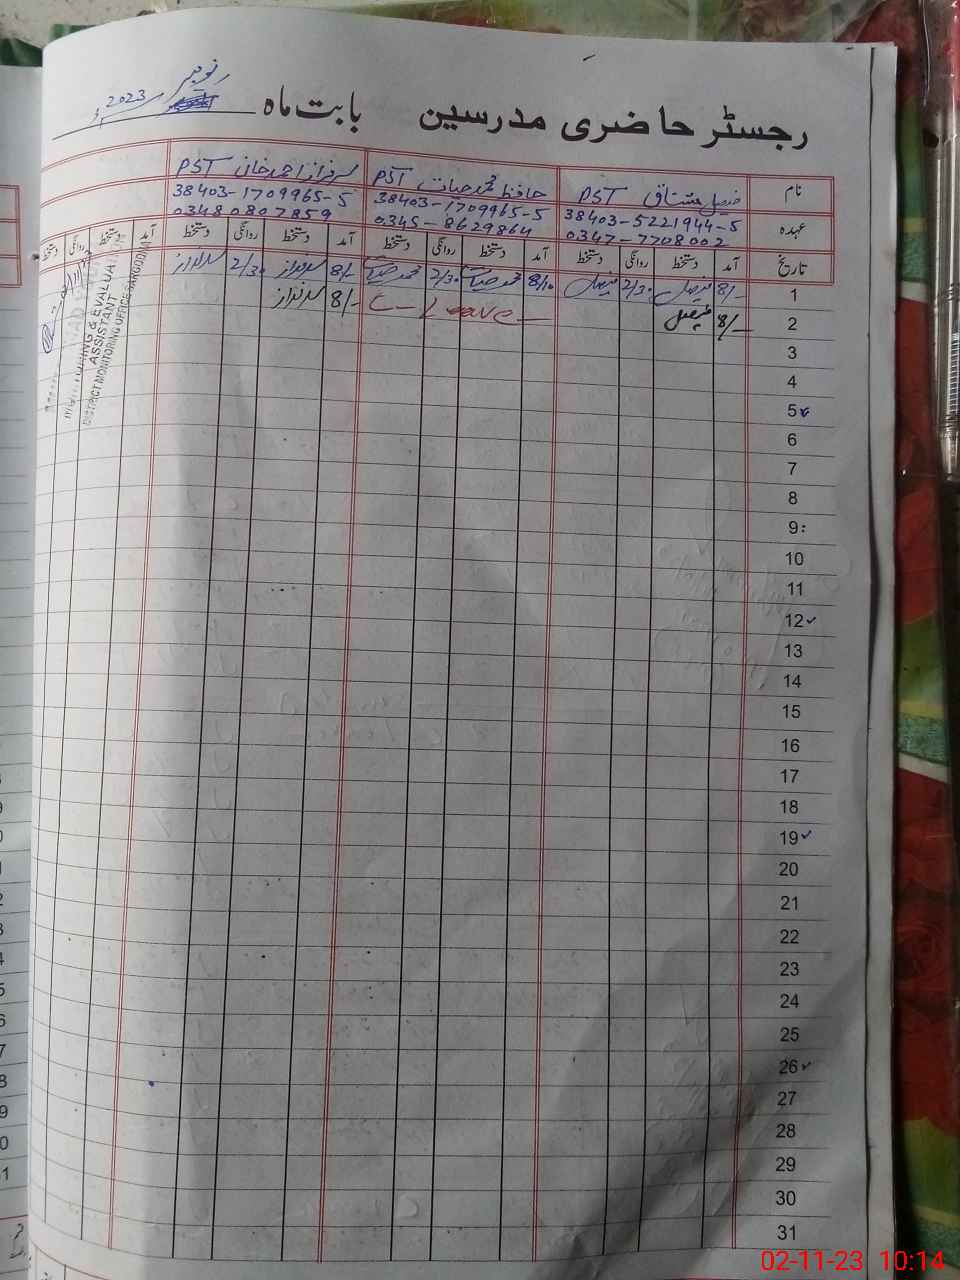 رجسٹر حاضری مدرسین بابت ماہ نومبر 2023ء
نام فیصل مشتاق PST حافظ محمد حیات PST سرفراز احمد خان PST
عہدہ 38403-5221944-5 38403-1709965-5 38403-1709965-5
0347-7708002 0345-8629864 03480807859
تاریخ آمد دستخط روانگی دستخط آمد دستخط روانگی دستخط آمد دستخط روانگی دستخط آمد دستخط روانگی دستخط
1 8/- فیصل 2/30 فیصل 8/10 محمد حیات 2/30 محمد حیات 8/- سرفراز 2/30 سرفراز
2 8/- فیصل C-Leave- 8/- سرفراز
3
4
5
6
7
8
9
10
11
12
13
14
15
16
17
18
19
20
21
22
23
24
25
26
27
28
29
30
31
MONITORING & EVALUATION
ASSISTANT
DISTRICT MONITORING OFFICE SARGODHA
02-11-23 10:14